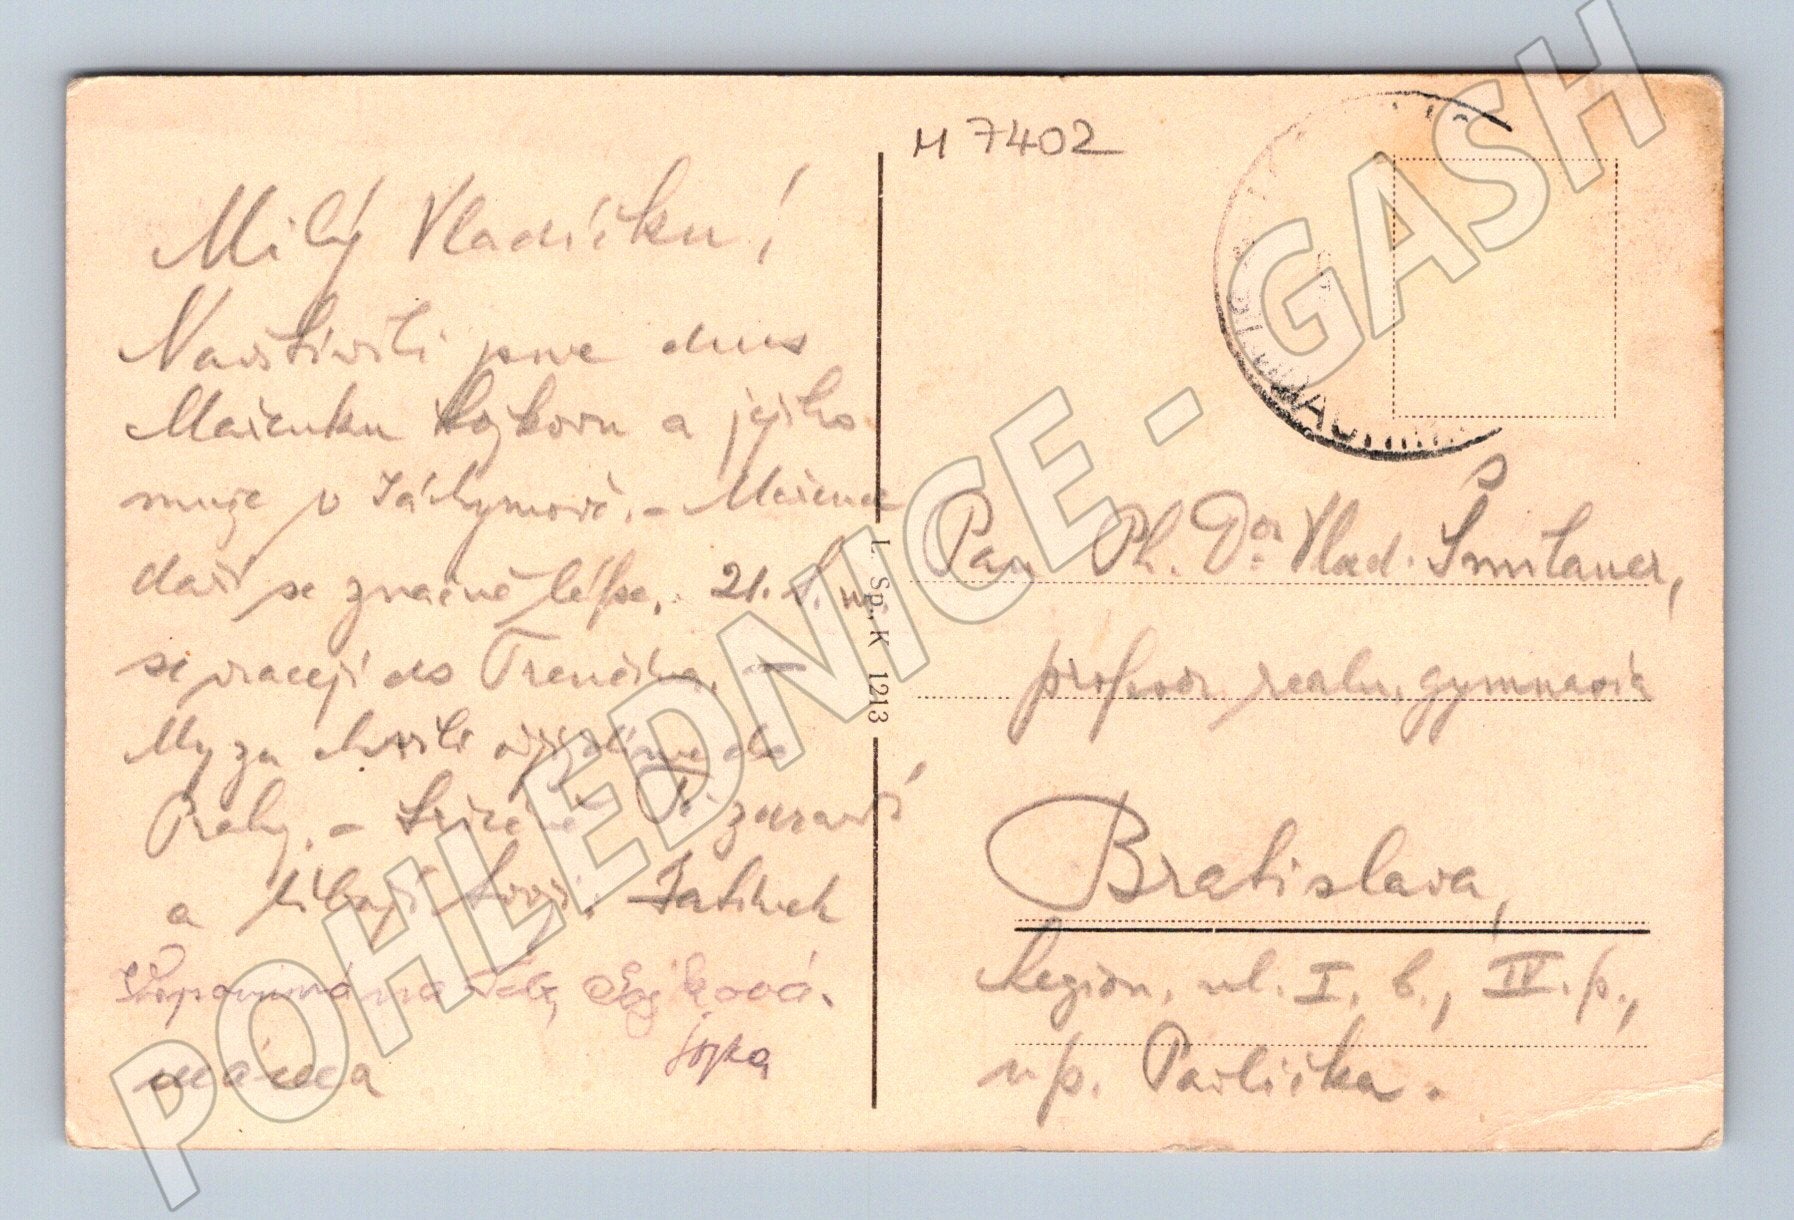 M 7402
Milý Vladíčku!
Navštívili jsme dnes
Mařenku Sojkovu a jejího
muže v Jáchymově. – Mařence
daří se značně lépe. 21. t. m.
se vracejí do Trenčína. –
My za chvíli odjíždíme do
Prahy. – Srdečně Tě zdraví
a líbají Tvoji Tatínek
Vzpomíná na Tebe Sojková.
Sojka
máma
L. Sp., K 1213
Pan Ph. Dr. Vlad. Šmilauer,
profesor realn. gymnasia
Bratislava,
Legion. ul. I. b., IV. p.,
u p. Pavlíčka.
POHLEDNICE - GASH